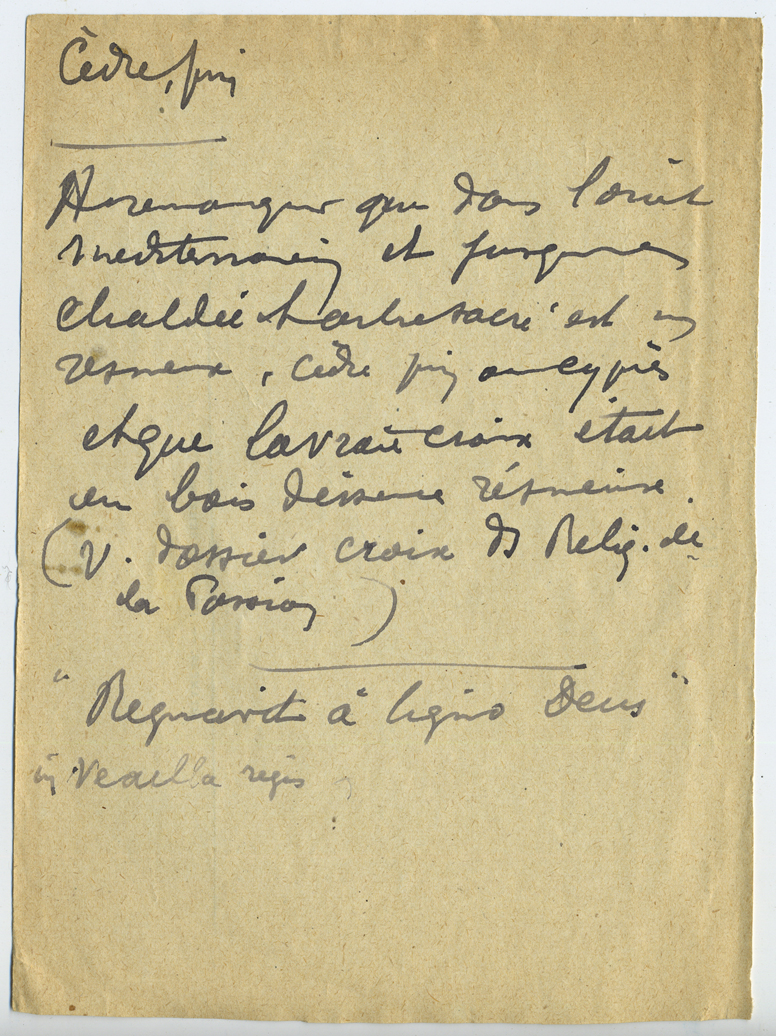 Cèdre, pin
A remarquer que dans l'orient
mediterranéen et jusqu'en
chaldée l'arbre sacré est un
resineux, cèdre pin ou cyprès
et que la vraie croix était
en bois d'essence résineuse.
(V. dossier croix ds Relig. de
la Passion)
"Regnavit à ligno Deus"
in Vexilla regis